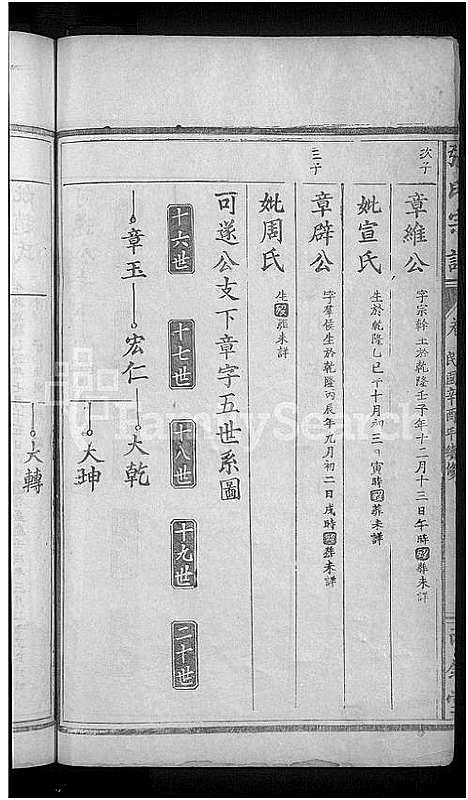 次子
章維公
字宗幹生於乾隆壬子年十二月十三日午時歿葬未詳
妣宣氏
生於乾隆乙巳年十月初三日寅時歿葬未詳
三子
章辟公
字羣侯生於乾隆丙辰年九月初二日戌時歿葬未詳
妣周氏
生歿葬未詳
可遂公支下章字五世系圖
十六世
十七世
十八世
十九世
二十世
章玉
宏仁
大乾
大坤
大轉
民國辛酉年續修
FamilySearch